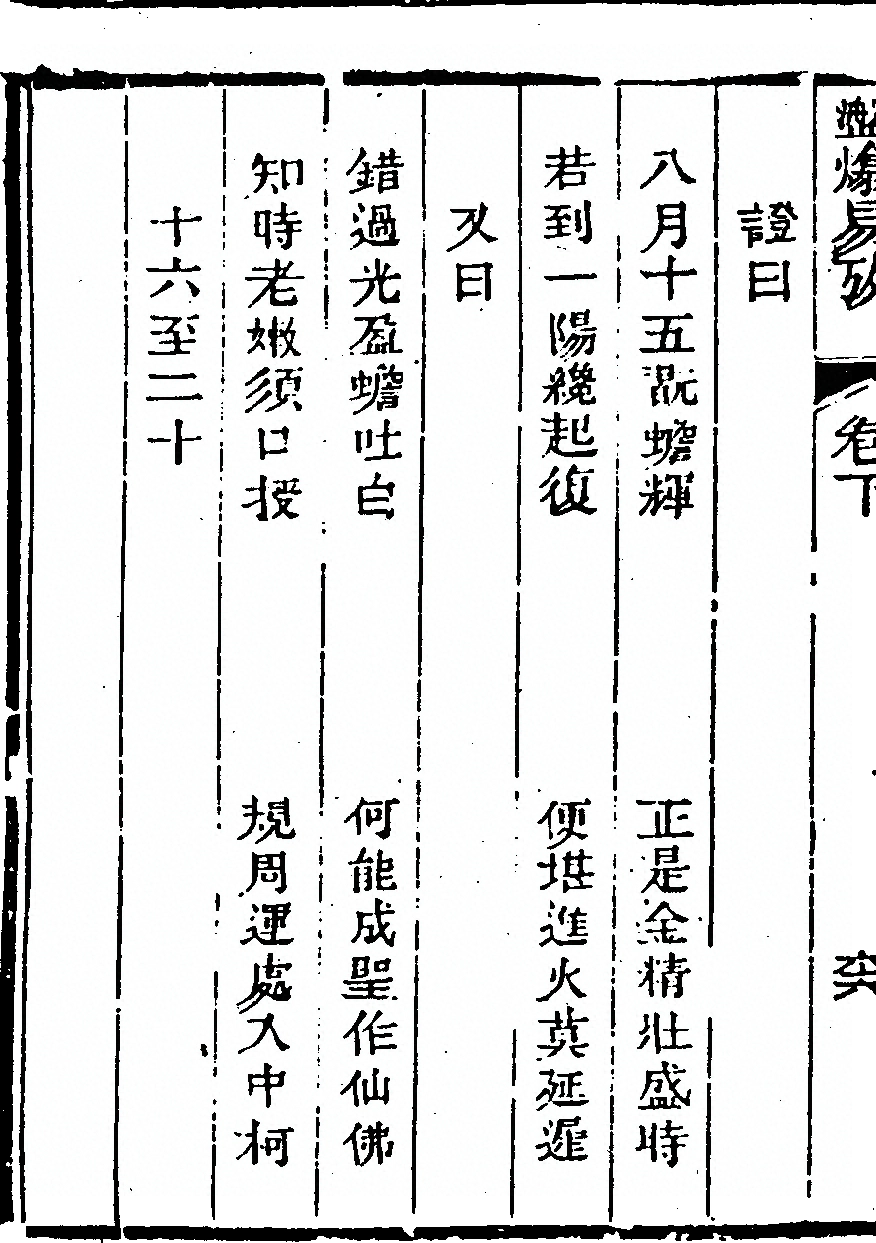 卷下
證曰
八月十五翫蟾輝 正是金精壯盛時
若到一陽纔起復 便堪進火莫延遲
又曰
錯過光盈蟾吐白 何能成聖作仙佛
知時老嫩須口授 規周運處入中柯
十六至二十